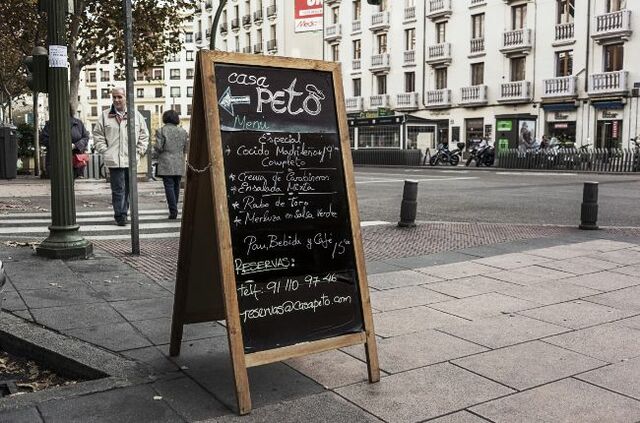 casa
PETO
Menú
Especial
Cocido Madrileño/19€
Completo
* Crema de Carabineros
* Ensalada Mixta
* Rabo de Toro
* Merluza en salsa verde
Pan, Bebida y Café /15€
RESERVAS:
telf: 91 110 97 46
reservas@casapeto.com